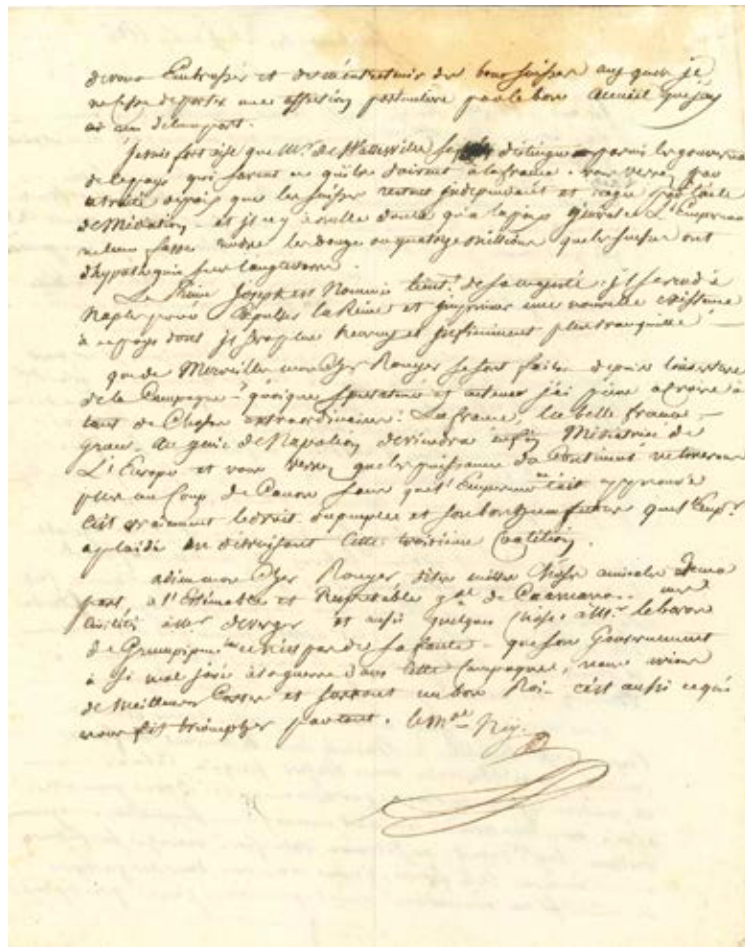 de vous Embrasser et de m'entretenir des bons suisses auxquels je
ne cesse de porter une affection particulière par le bon accueil que j'ay
eu de leur part.
Je suis fort aise que Mr. de Watteville se distingue parmi les gouvernans
de ce pays qui savent ce qu'ils doivent à la france. vous verrez par
traité depuis que les suisses restent indépendans et par l'acte
de Médiation et il n'y a nulle doute qu'à la paix générale L'Empereur
ne leur fasse rendre les douze ou quatorze millions que les suisses ont
d'hypothèqué sur l'angleterre.
Le Prince Joseph est Nommé lieut. de sa majesté; il se rend à
Naples pour expulser la Reine et imprimer une nouvelle existence
à ce pays dont il sera plus heureux et infiniment plus tranquille.
que de Merveilles mon cher Rouyer se sont faites depuis l'ouverture
de la Campagne! quoique spectateur et acteur j'ai peine à croire à
tant de Choses extraordinaires! La france, la belle france
grace au génie de Napoléon deviendra enfin Médiatrice de
L'Europe et vous verrez que les puissances du Continent ne tireront
plus un Coup de Canon sans que l'Empereur ne l'ait approuvé
C'est vraiment le droit des peuples et son bonheur futur que l'Empr.
a plaidé en détruisant cette troisième Coalition.
adieu mon cher Rouyer, dites mille choses amicales de ma
part à l'Estimable et Respectable gal de Caamano. mes
civilités à Mr. de verger et aussi quelques choses à Mr. le baron
de ce n'est pas de sa faute que son Gouvernement
a si mal joué à la guerre dans cette Campagne, nous avions
de meilleures Cartes et surtout un bon Roi. c'est aussi ce qui
nous fit triompher partout. le Mal Ney.